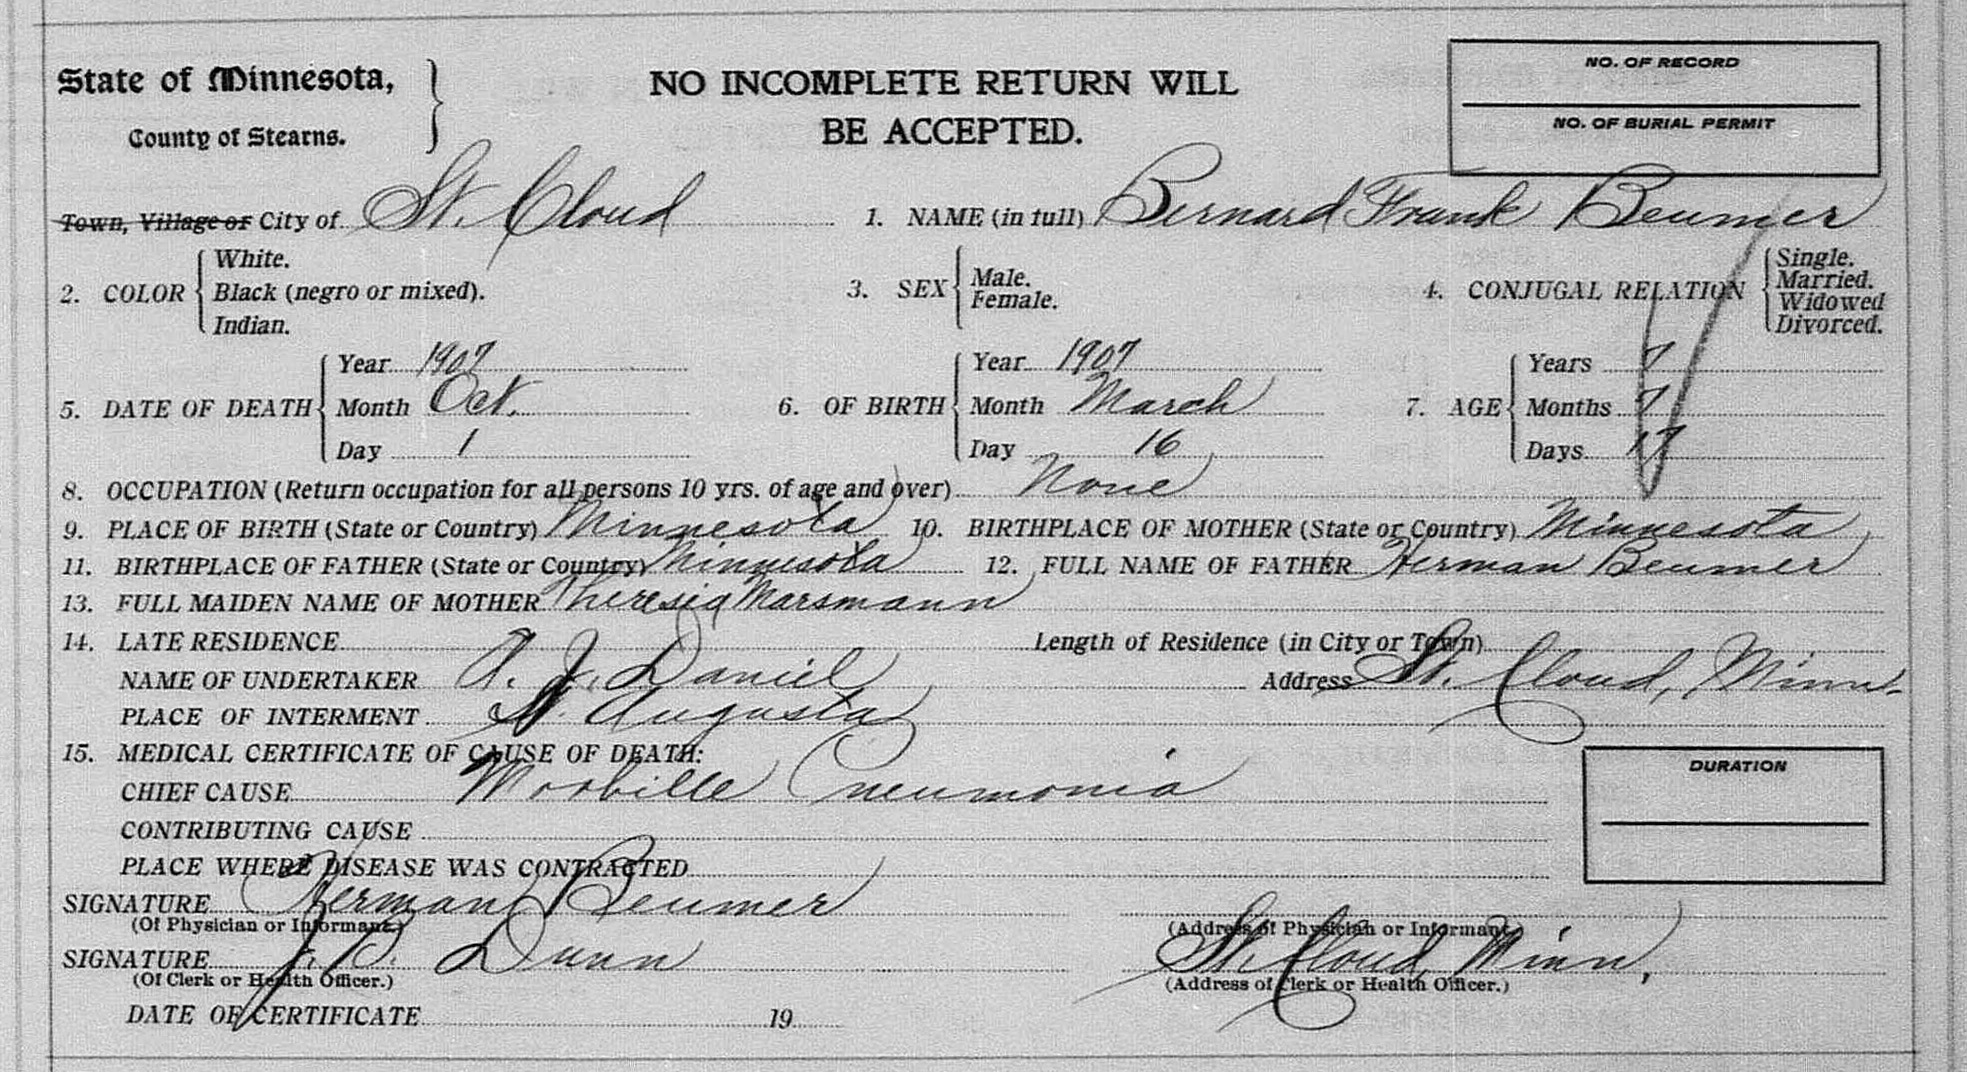 State of Minnesota,
County of Stearns.
NO INCOMPLETE RETURN WILL
BE ACCEPTED.
NO. OF RECORD
NO. OF BURIAL PERMIT
Town, Village or City of St. Cloud 1. NAME (in full) Bernard Frank Beumer
2. COLOR White. Black (negro or mixed). Indian. 3. SEX Male. Female. 4. CONJUGAL RELATION Single. Married. Widowed Divorced.
5. DATE OF DEATH Year 1907 Month Oct. Day 1 6. OF BIRTH Year 1907 Month March Day 16 7. AGE Years Months 7 Days 17
8. OCCUPATION (Return occupation for all persons 10 yrs. of age and over) None
9. PLACE OF BIRTH (State or Country) Minnesota 10. BIRTHPLACE OF MOTHER (State or Country) Minnesota
11. BIRTHPLACE OF FATHER (State or Country) Minnesota 12. FULL NAME OF FATHER Herman Beumer
13. FULL MAIDEN NAME OF MOTHER Theresia Marsmann
14. LATE RESIDENCE Length of Residence (in City or Town)
NAME OF UNDERTAKER J. Daniel Address St. Cloud, Minn.
PLACE OF INTERMENT St. Augusta
15. MEDICAL CERTIFICATE OF CAUSE OF DEATH:
CHIEF CAUSE Morbille Pneumonia
DURATION
CONTRIBUTING CAUSE
PLACE WHERE DISEASE WAS CONTRACTED
SIGNATURE Herman Beumer
(Of Physician or Informant.) (Address of Physician or Informant.)
SIGNATURE J. P. Dunn St. Cloud, Minn.
(Of Clerk or Health Officer.) (Address of Clerk or Health Officer.)
DATE OF CERTIFICATE 19